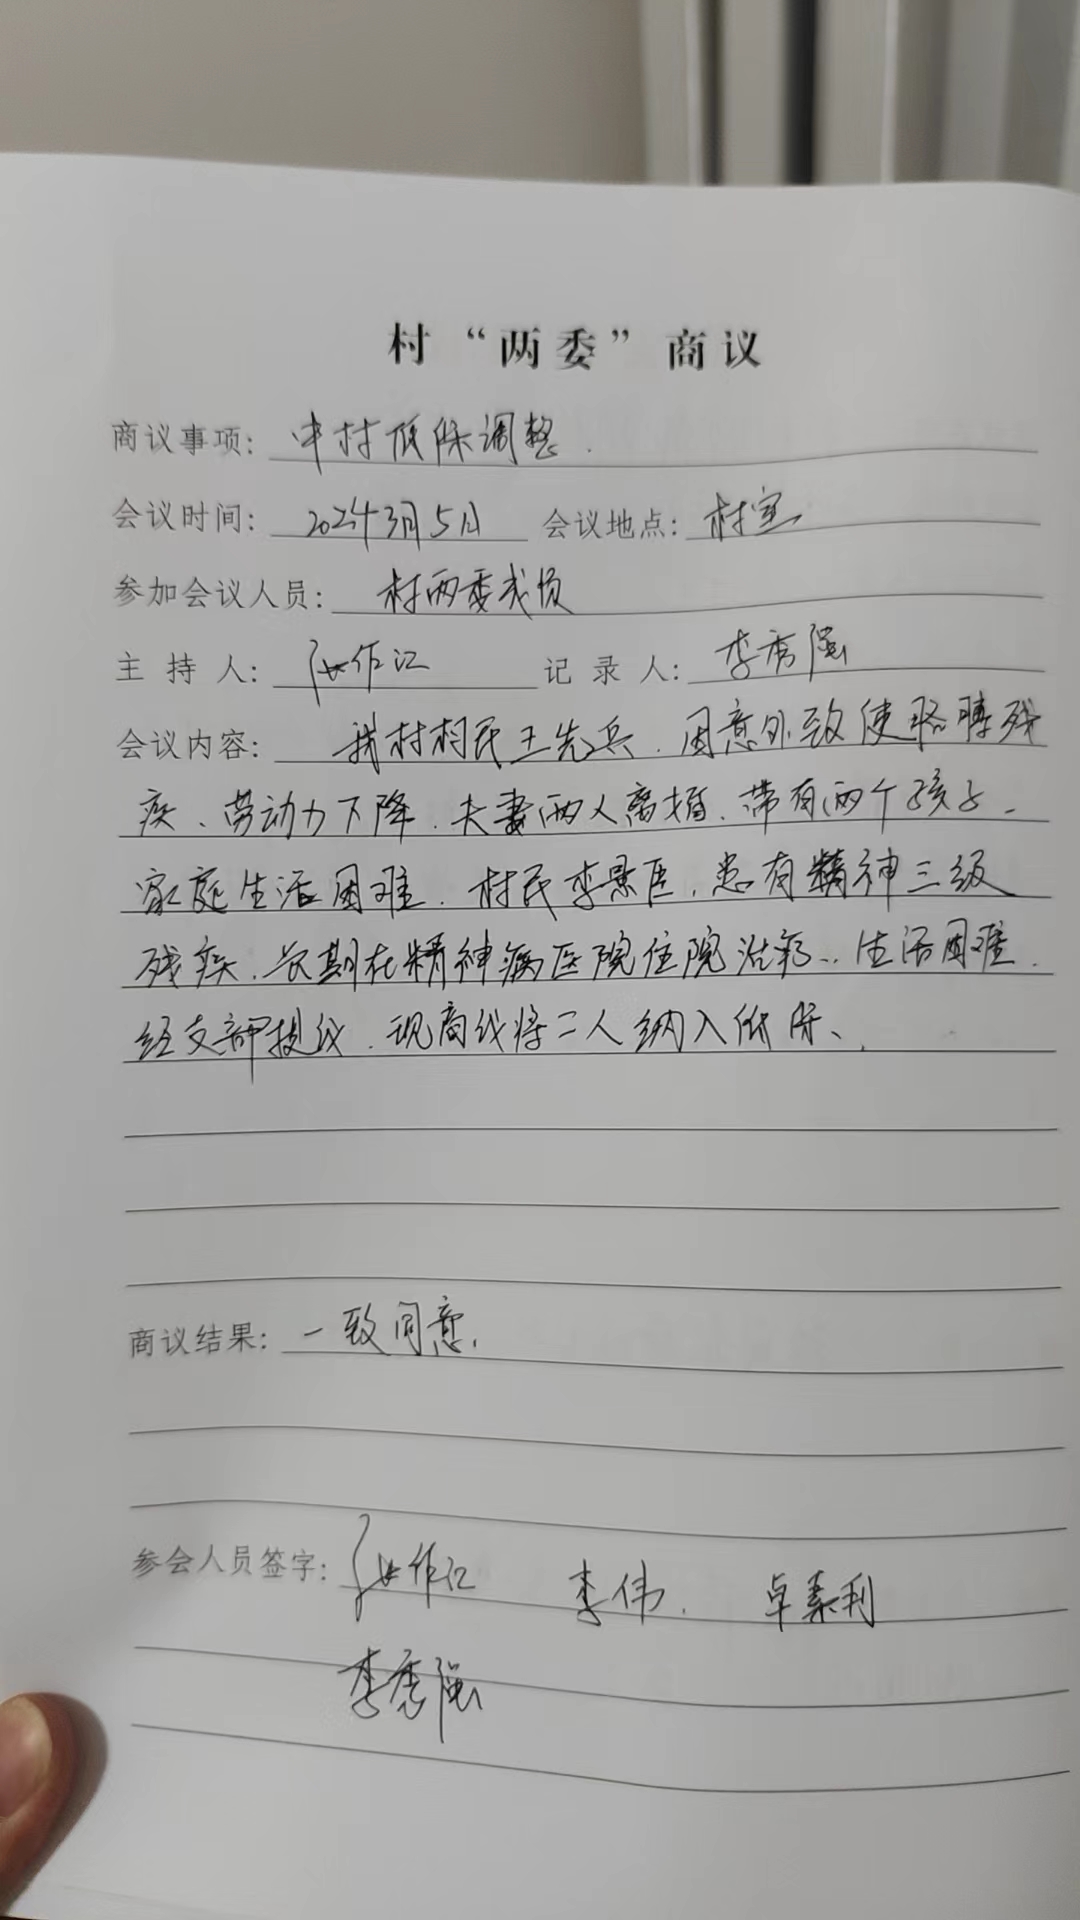 村“两委”商议
商议事项：中村低保调整.
会议时间：2024年3月5日 会议地点：村室
参加会议人员：村两委成员
主持人：张作江 记录人：李秀强
会议内容：我村村民王先兵，因意外致使胳膊残
疾、劳动力下降，夫妻两人离婚，带有两个孩子，
家庭生活困难，村民李景臣，患有精神三级
残疾，长期在精神病医院住院治疗，生活困难，
经支部提议，现商议将二人纳入低保、
商议结果：一致同意，
参会人员签字：张作江 李伟. 卓素利
李秀强